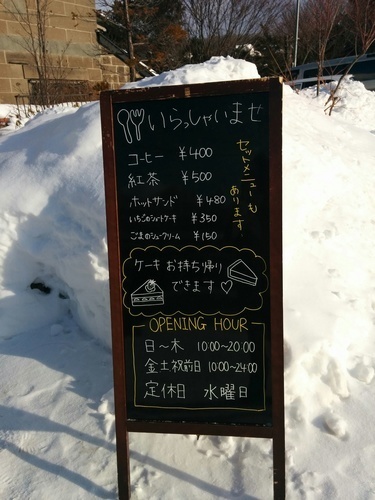 いらっしゃいませ
コーヒー ¥400
紅茶 ¥500
ホットサンド ¥480
いちごのショートケーキ ¥350
ごまのシュークリーム ¥150
セットメニューも
あります
ケーキ お持ち帰り
できます♡
OPENING HOUR
日〜木 10:00〜20:00
金土祝前日 10:00〜24:00
定休日 水曜日